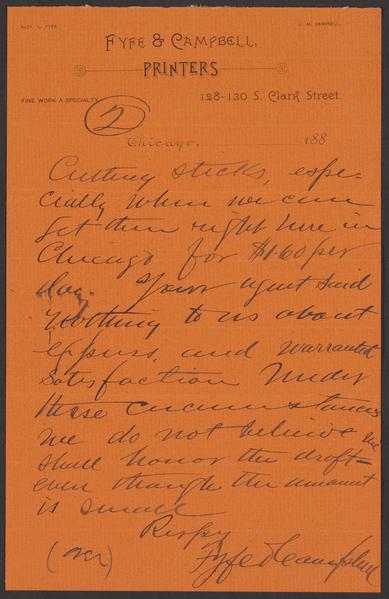 ALEX. L. FYFE.
J. M. CAMPBELL.
FYFE & CAMPBELL,
PRINTERS
FINE WORK A SPECIALTY.
128-130 S. Clark Street.
2
Chicago, 188
Cutting sticks, espe-
cially when we can
get them right here in
Chicago for $1.60 per
doz. Your agent said
nothing to us about
express, and warranted
satisfaction Under
these circumstances
we do not believe we
shall honor the draft
even though the amount
is small
Respy
Fyfe & Campbell
(over)